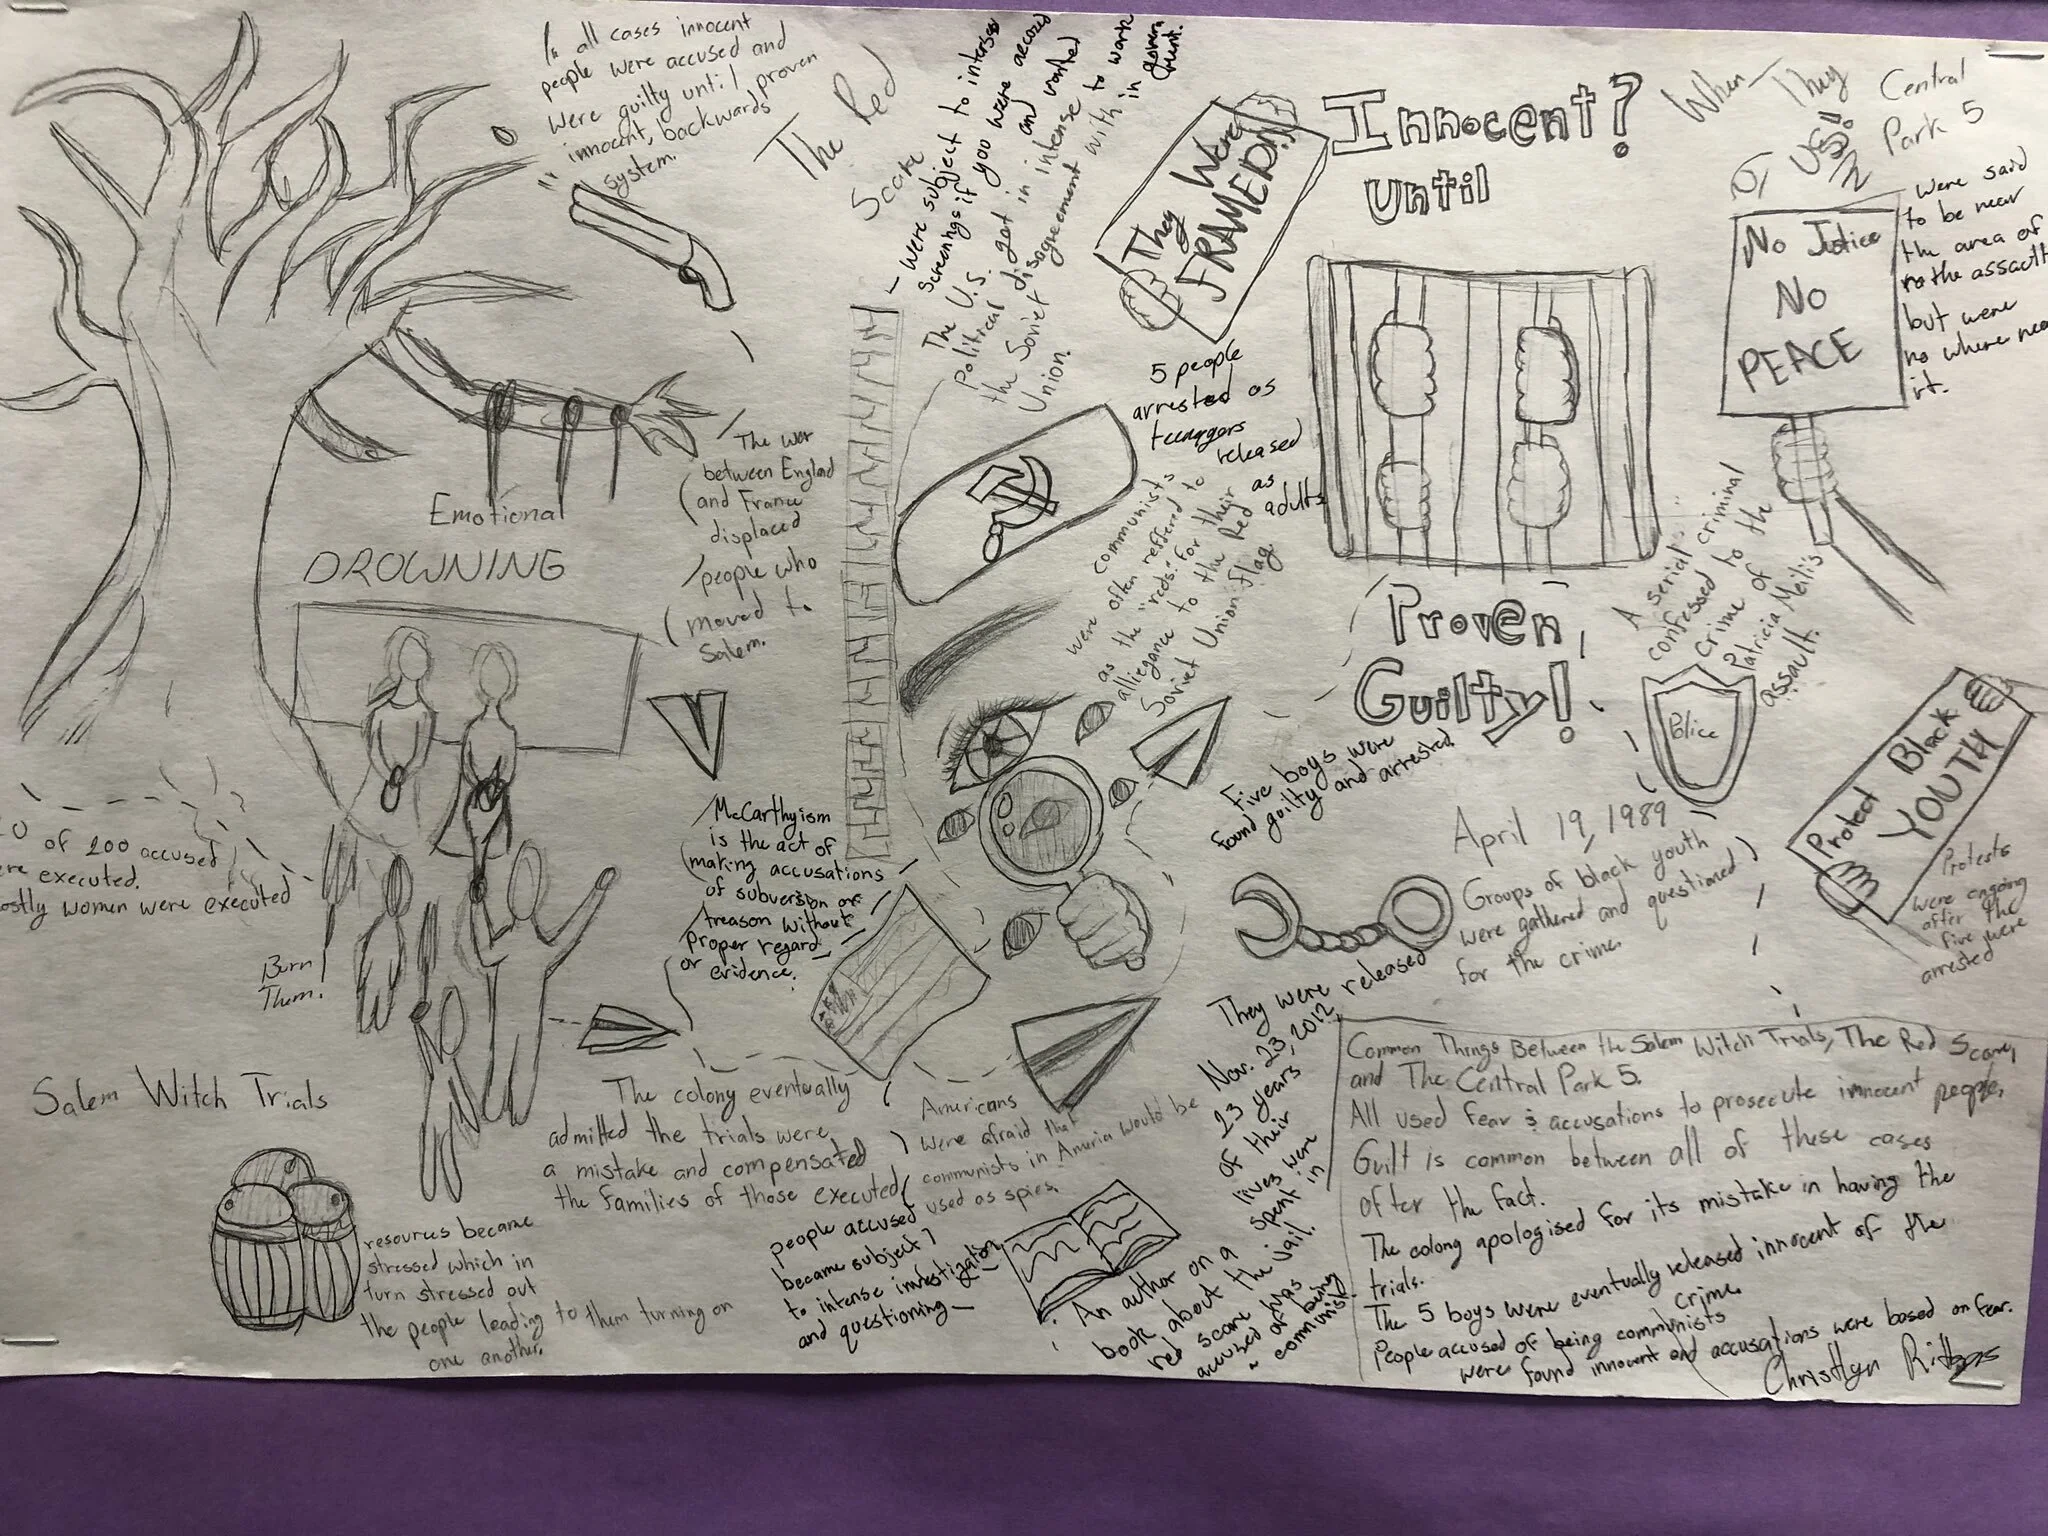 In all cases innocent
people were accused and
were guilty until proven
innocent, backwards
system.
The Red
Scare
- were subject to intense
screenings if you were accused
and wanted
to work
within govern
ment.
The U.S. got in intense
political disagreement with
the Soviet
Union.
They Were
FRAMED!!!
Innocent?
Until
Proven
Guilty!
When They
See US!
Central
Park 5
were said
to be near
the area of
the assault
but were
no where near
it.
No Justice
No
PEACE
5 people
arrested as
teenagers
released
as
adults
communists
were often reffered to
as the "reds" for their
alliegance to the Red
Soviet Union Flag.
Emotional
DROWNING
The war
between England
and France
displaced
people who
moved to
Salem.
A "serial" criminal
confessed to the
crime of
Patricia Meili's
assault.
Police
Protect Black
YOUTH
Protests
were ongoing
after the
five were
arrested
Five boys were
found guilty and arrested.
April 19, 1989
Groups of black youth
were gathered and questioned
for the crime.
20 of 200 accused
were executed.
Mostly women were executed
Burn
Them!
McCarthyism
is the act of
making accusations
of subversion or
treason without
proper regard
or evidence.
They were released
Nov. 23, 2012,
23 years
of their
lives were
spent in
jail.
Salem Witch Trials
The colony eventually
admitted the trials were
a mistake and compensated
the families of those executed
Americans
were afraid that
communists in America would be
used as spies.
resources became
stressed which in
turn stressed out
the people leading to them turning on
one another.
people accused
became subject
to intense investigation
and questioning
An author on a
book about the
red scare was
accused of being
a communist.
Common Things Between the Salem Witch Trials, The Red Scare,
and The Central Park 5.
All used fear & accusations to prosecute innocent people,
Guilt is common between all of these cases
after the fact.
The colony apologised for its mistake in having the
trials.
The 5 boys were eventually released innocent of the
crime.
People accused of being communists
were found innocent and accusations were based on fear.
Christlyn